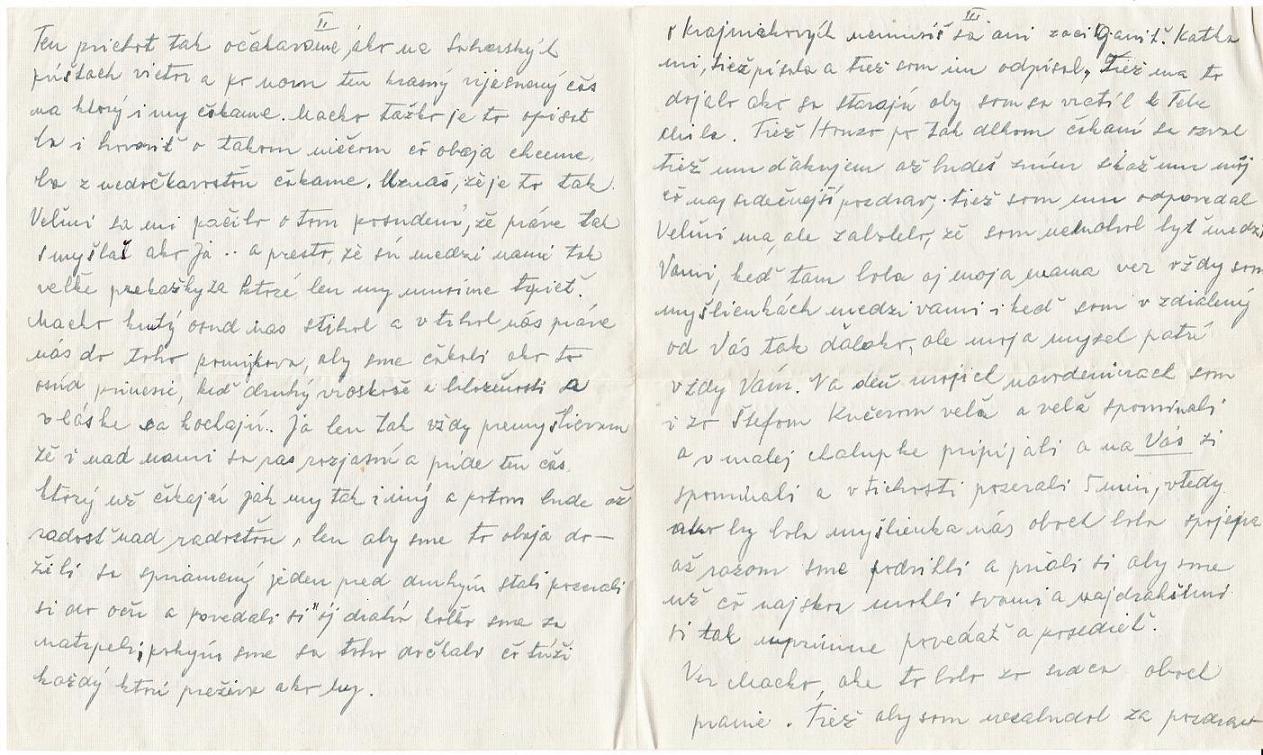 II
Ten príchot tak očakávame, ako na Saharských
púštach vietor a po novom ten krasný vyjasnený čas
na ktorý i my čekame. Macko ťažko je to opísat
ba i hovoriť o takom niečom čo obaja chceme.
ba z nedočkavosťou čakame. Uznáš, že je to tak.
Velmi sa mi páčilo o tom posudení, že práve tak
smyšlaš ako Ja .. a presto, že sú medzi nami tak
velké prekažky za ktoré len my musíme trpiet.
Macko krutý osud nas stihol a vtihol nás práve
nás do toho pomykova, aby sme čakali ako to
osúd prinesie, keď druhý v roskoše a blaženosti a
v láske sa kochajú.. Já len tak vždy premyšlievam
že i nad nami sa ras rozjasní a príde ten čas
ktorý už čakajú jak my tak i iný a potom bude až
radosť nad radosťou, len aby sme to obaja do-
žili sa spriamený jeden pred druhým stali pozerali
si do očú a povedali si "ej drahá kolko sme sa
natrpeli, pokým sme sa toho dočkali čo túži
každý ktorí prežíva ako my.
III
s Krajniakových nemusíš sa ani zacigániť. Katka
mi, tiež písala a tiež som im odpísal, Tiež ma to
dojalo ako sa starajú aby som sa vrátil k Tebe
milá. Tiež Honzo po tak dlhom čakaní sa ozval
tiež mu ďakujem až budeš s ním skáž mu môj
čo naj srdečnejší pozdrav, tiež som mu odpovedal
Velmi ma, ale zabolelo, že som nemohol byt medzi
Vami, keď tam bola aj moja mama ver vždy som
myšlienkách medzi vami i keď som v zdialený
od Vás tak ďaloko, ale moja mysel patrí
vždy Vám. Na deň mojich narodeninach som
i zo Štefom Kučerom vela a vela spomínali
a v malej chalupke pripíjali a na Vás si
spomínali a v tichosti pozerali 5 min, vtedy
ako by bola myšlienka nás oboch bola spojena
až razom sme podvihli a priali si aby sme
už čo najskor mohli svami a najdrahšími
si tak uprímne povedať a posedieť.
Ver Macko, ake to bolo zo srdca oboch
pranie. Tiež aby som nezabudol za pozdrav